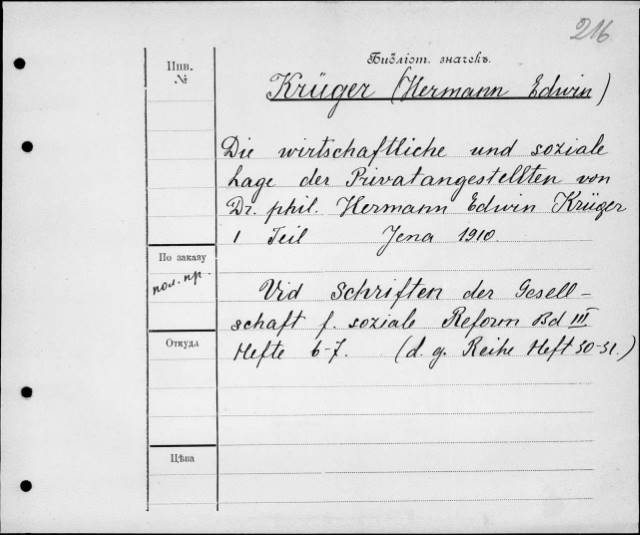 216
Библіот. значекъ.
Инв.
№
Krüger (Hermann Edwin)
Die wirtschaftliche und soziale
Lage der Privatangestellten von
Dr. phil. Hermann Edwin Krüger
1 Teil Jena 1910.
По заказу
пол. пр.
Vid Schriften der Gesell-
schaft f. soziale Reform Bd III
Откуда
Hefte 6-7. (d. g. Reihe Heft 30-31.)
Цѣна